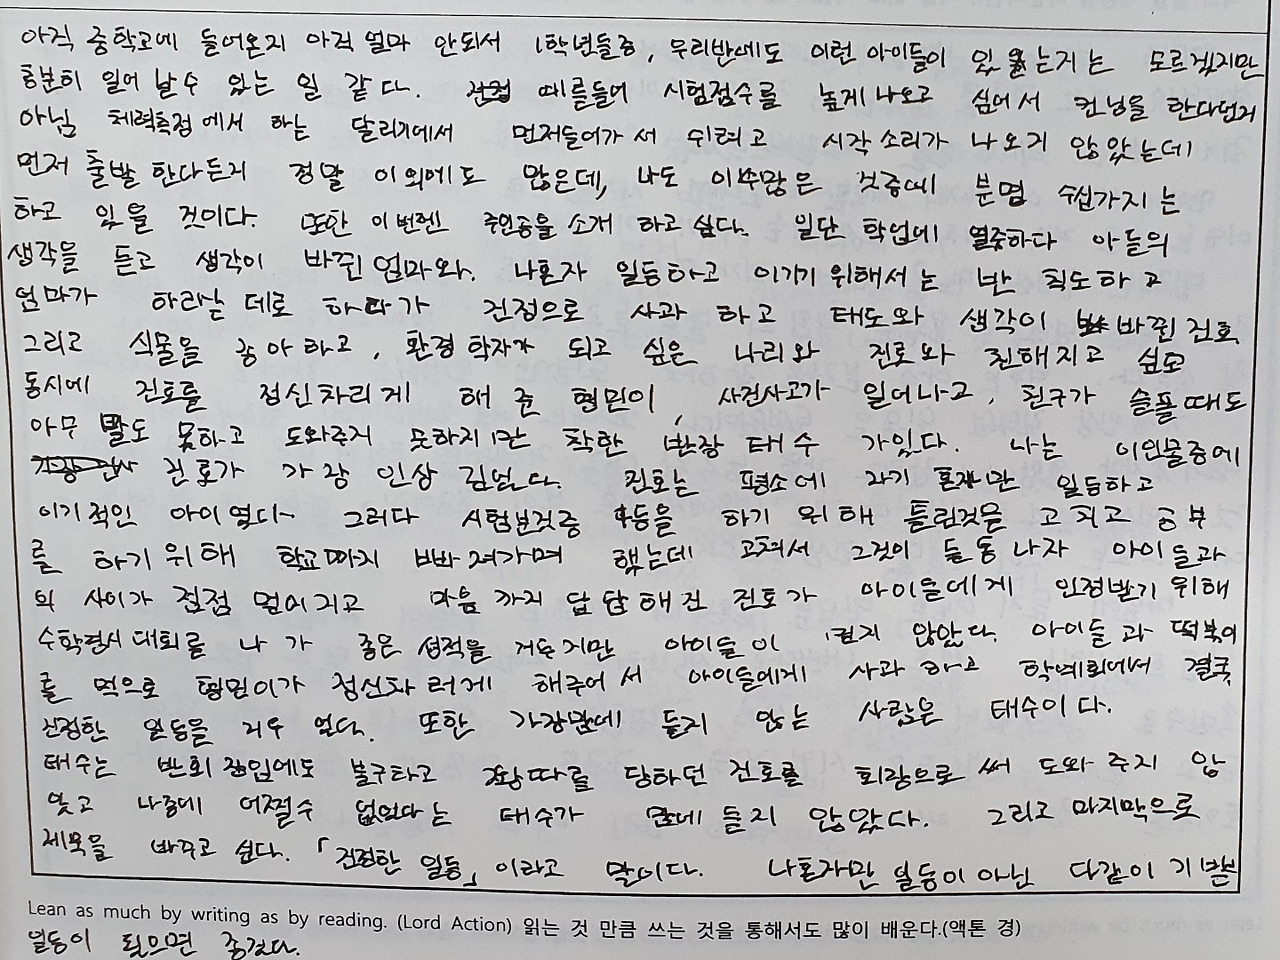 아직 중학교에 들어온지 아직 얼마 안되서 1학년들중, 우리반에도 이런 아이들이 있을는지는 모르겠지만
충분히 일어 날 수 있는 일 같다. 예를들어 시험점수를 높게 나오고 싶어서 컨닝을 한다던지
아님 체력측정에서 하는 달리기에서 먼저들어가서 쉬려고 시작 소리가 나오지 않았는데
먼저 출발 한다든지 정말 이외에도 많은데, 나도 이수많은 것중에 분명 수십가지는
하고 있을 것이다. 또한 이번엔 주인공을 소개 하고 싶다. 일단 학업에 열중하다 아들의
생각을 듣고 생각이 바뀐 엄마와. 나혼자 일등하고 이기기 위해서는 반 칙도 하고
엄마가 하라는 데로 하다가 진정으로 사과 하고 태도와 생각이 바뀐 진호,
그리고 식물을 좋아하고, 환경 학자가 되고 싶은 나리와 진호와 친해지고 싶고
동시에 진호를 정신차리게 해 준 형민이, 사건사고가 일어나고, 친구가 슬플때도
아무 말도 못하고 도와주지 못하지만 착한 반장 태수 가있다. 나는 이인물중에
진호가 가장 인상 깊었다. 진호는 평소에 자기 혼자만 일등하고
이기적인 아이였다~ 그러다 시험본것중 일등을 하기 위해 틀린것을 고치고 공부
를 하기 위해 학교까지 빠져가며 했는데 고쳐서 그것이 들통 나자 아이들과
의 사이가 점점 멀어지고 마음 까지 답답해진 진호가 아이들에게 인정받기 위해
수학경시 대회를 나 가 좋은 성적을 거두지만 아이들이 켜지 않았다. 아이들과 떡볶이
를 먹으로 형민이가 정신차려게 해주어서 아이들에게 사과 하고 학예회에서 결국,
진정한 일등을 거두었다. 또한 가장맘에 들지 않는 사람은 태수이다.
태수는 반회장임에도 불구하고 왕따를 당하던 진호를 회장으로써 도와 주지 않
았고 나중에 어쩔수 없었다는 태수가 맘에 들지 않았다. 그리고 마지막으로
제목을 바꾸고 싶다. 「진정한 일등」이라고 말이다. 나혼자만 일등이 아닌 다같이 기쁜
Lean as much by writing as by reading. (Lord Action) 읽는 것 만큼 쓰는 것을 통해서도 많이 배운다.(액톤 경)
일등이 됬으면 좋겠다.